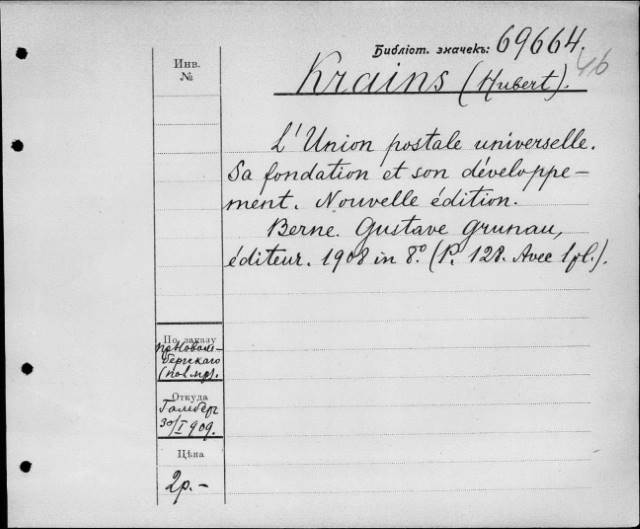 Библіот. значекъ: 69664.
46
Инв.
№
Krains (Hubert).
L'Union postale universelle.
Sa fondation et son développe-
ment. Nouvelle édition.
Berne. Gustave Grunau,
éditeur. 1908 in 8.° (P. 128. Avec 1 pl.).
По заказу
бергскаго
Откуда
30/I 909.
Цѣна
2р.-